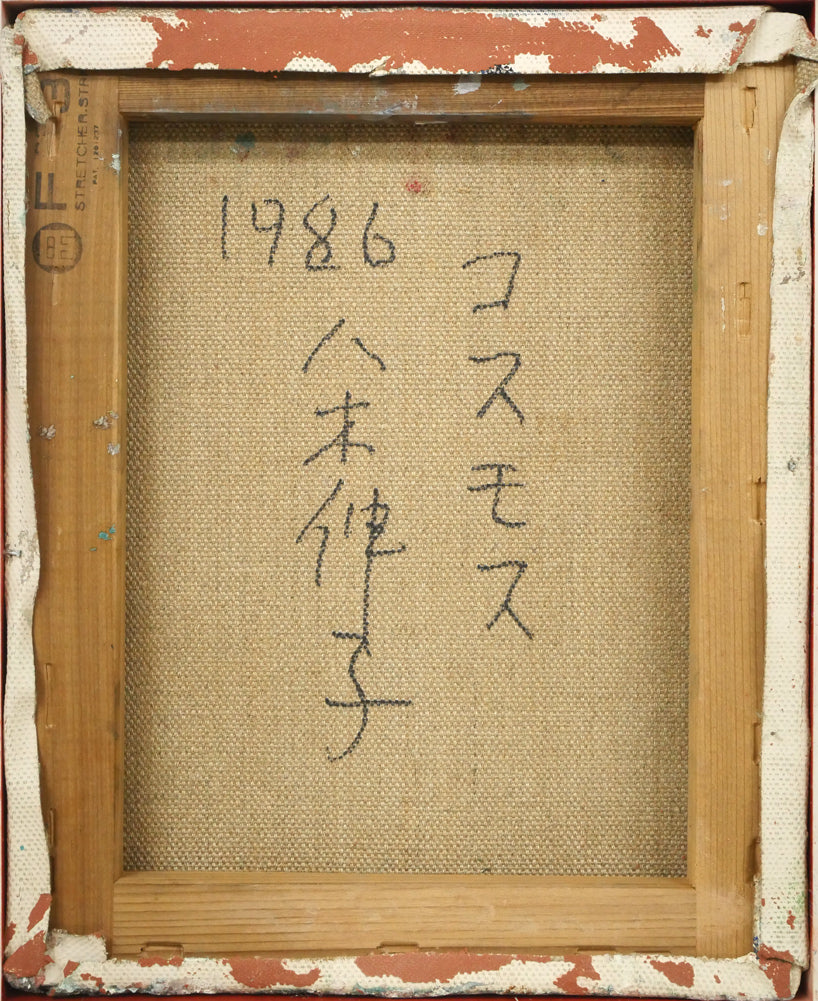 コスモス
1986
八木伸子
F
STRETCHER.STR
PAT. 120297
85